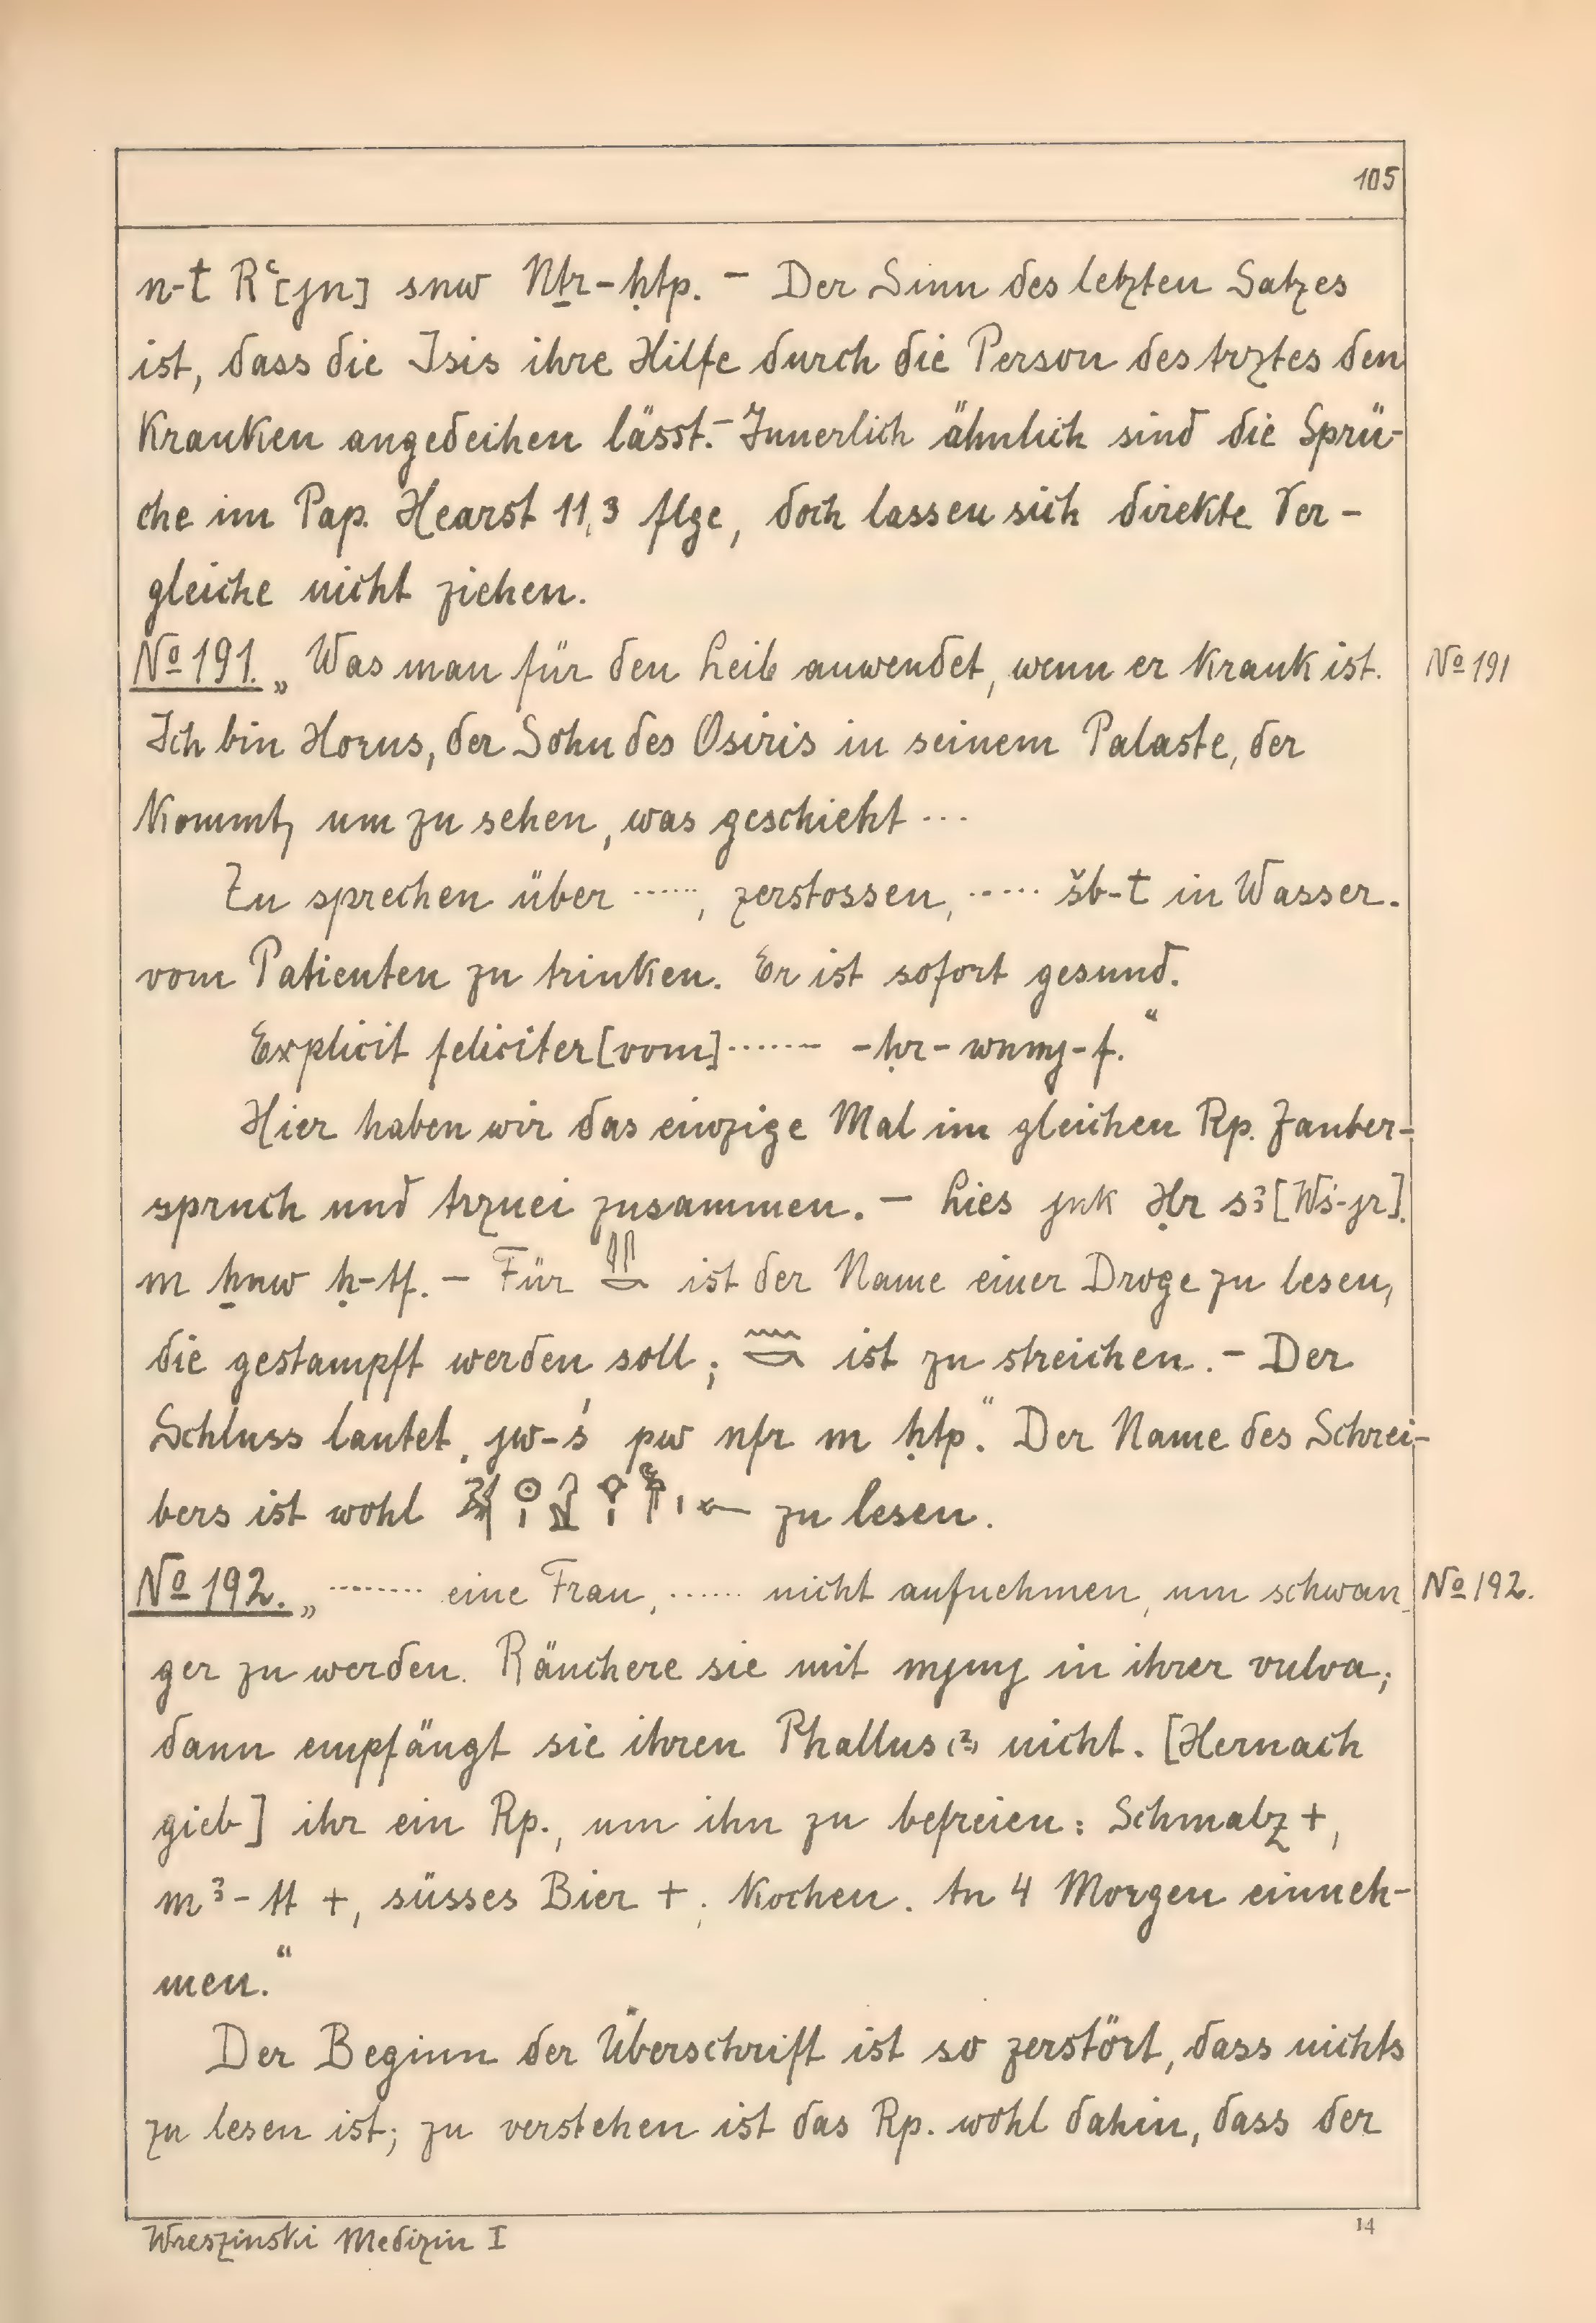 105
n-t Rꜥ[jn] snw Nṯr-ḥtp. – Der Sinn des letzten Satzes
ist, dass die Isis ihre Hilfe durch die Person des Arztes den
Kranken angedeihen lässt. – Innerlich ähnlich sind die Sprü-
che im Pap. Hearst 11,3 flge, doch lassen sich direkte Ver-
gleiche nicht ziehen.
No 191. „Was man für den Leib anwendet, wenn er krank ist. No 191
Ich bin Horus, der Sohn des Osiris in seinem Palaste, der
kommt, um zu sehen, was geschieht ...
Zu sprechen über ......, zerstossen, ..... šb-t in Wasser.
vom Patienten zu trinken. Er ist sofort gesund.
Explicit feliciter [vom] ....... -ḥr-wnmj-f."
Hier haben wir das einzige Mal im gleichen Rp. Zauber-
spruch und Arznei zusammen. – Lies jnk Ḥr sꜣ [Wś-jr]
m ẖnw ḥ-tf. – Für 𓇋𓇋𓎡 ist der Name einer Droge zu lesen,
die gestampft werden soll; 𓈖𓎡 ist zu streichen. – Der
Schluss lautet „jw-ś pw nfr m ḥtp." Der Name des Schrei-
bers ist wohl zu lesen.
No 192. „........ eine Frau, ...... nicht aufnehmen, um schwan- No 192.
ger zu werden. Räuchere sie mit mjmj in ihrer vulva;
dann empfängt sie ihren Phallus (?) nicht. [Hernach
gieb] ihr ein Rp., um ihn zu befreien: Schmalz +,
mꜣ-tt +, süsses Bier +; kochen. An 4 Morgen einneh-
men."
Der Beginn der Überschrift ist so zerstört, dass nichts
zu lesen ist; zu verstehen ist das Rp. wohl dahin, dass der
Wreszinski Medizin I 14